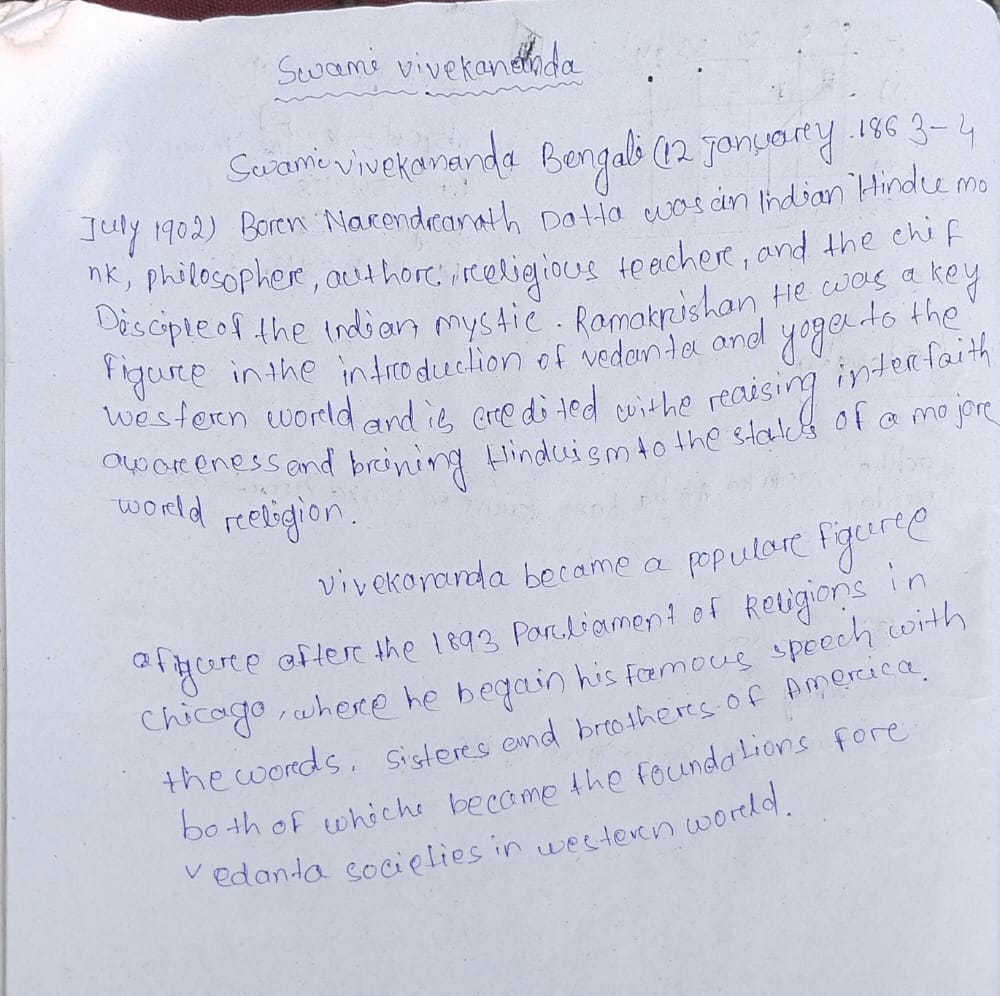 Swami vivekananda
Swami vivekananda Bengali (12 Januarey. 1863-4
July 1902) Boren Narendreanath Datta was an Indian Hindu mo
nk, philosophere, authore, religious teachere, and the chif
Disciple of the Indian mystic. Ramakrishan He was a key
figure in the introduction of vedanta and yoga to the
western woreld and is credited withe reaising interfaith
awareeness and brining Hinduism to the status of a majore
woreld reeligion.
Vivekananda became a populare figuree
a figuree aftere the 1893 Pareliament of Religions in
Chicago, where he begain his famous speech with
the woreds. Sisteres and brotheres of Amereica.
both of whiche became the foundations fore
vedanta societies in westeren woreld.